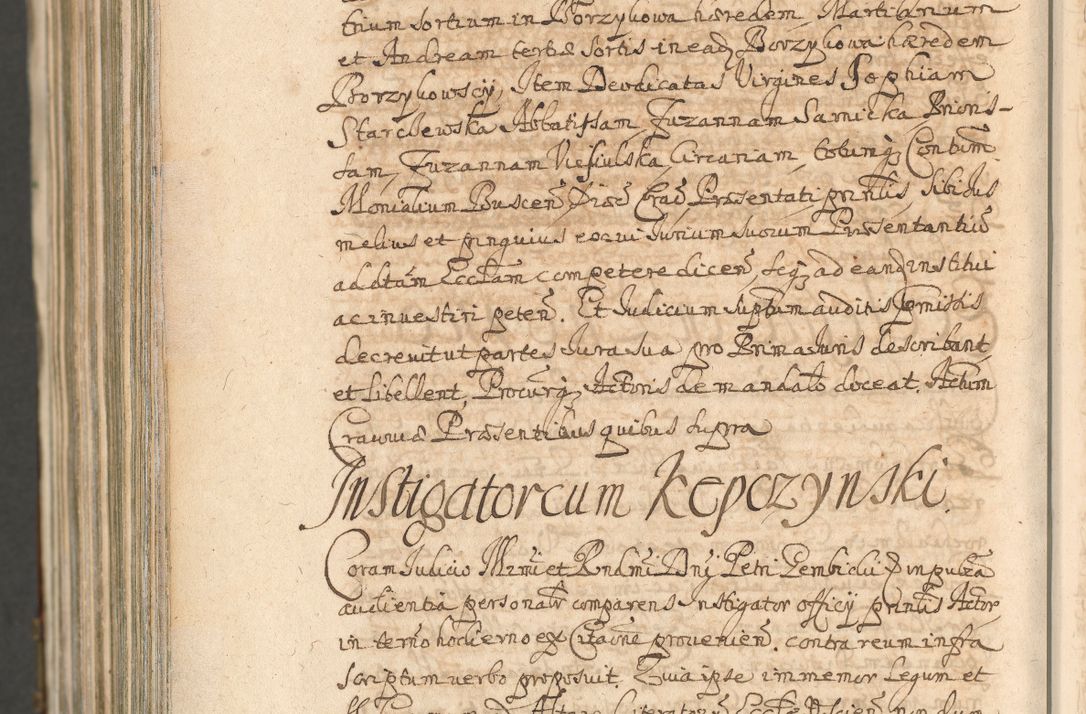 trium sortium in Borzykowa hæredem, Martianum
et Andream tertiæ sortis in ead Borzykowa hæredem
Borzykowscÿ, Item Deodicatas Virgines Sophiam
Starczewska Abbatissam, Zuzannam Sarnicka Prioris-
sam, Zuzannam Viesiulska, Circariam, totumq Contum
Monialium Buscen Diæc Crac Præsentati prntis, sibi Ius
melius et pinguius ex vi Iurium suorum Præsentandi
ad dtam Ecclam competere dicen seq ad eand institui
ac investiri peten. Et Iudicium suptum auditis pmissis
decrevit ut partes Iura sua pro Prima Iuris describant
et libellent, Procurq Actoris de mandato doceat. Actum
Cracoviæ Præsentibus quibus supra
Instigator cum Kępczynski.
Coram Iudicio Illrmi et Rndmi Dnj Petri Gembicki D in publca
audientia personalr comparens Instigator officÿ prntis Actor
in termo hodierno ex Citaone provenien. contra reum infra
scriptum verbo proposuit. Quia ipse immemor Legum et